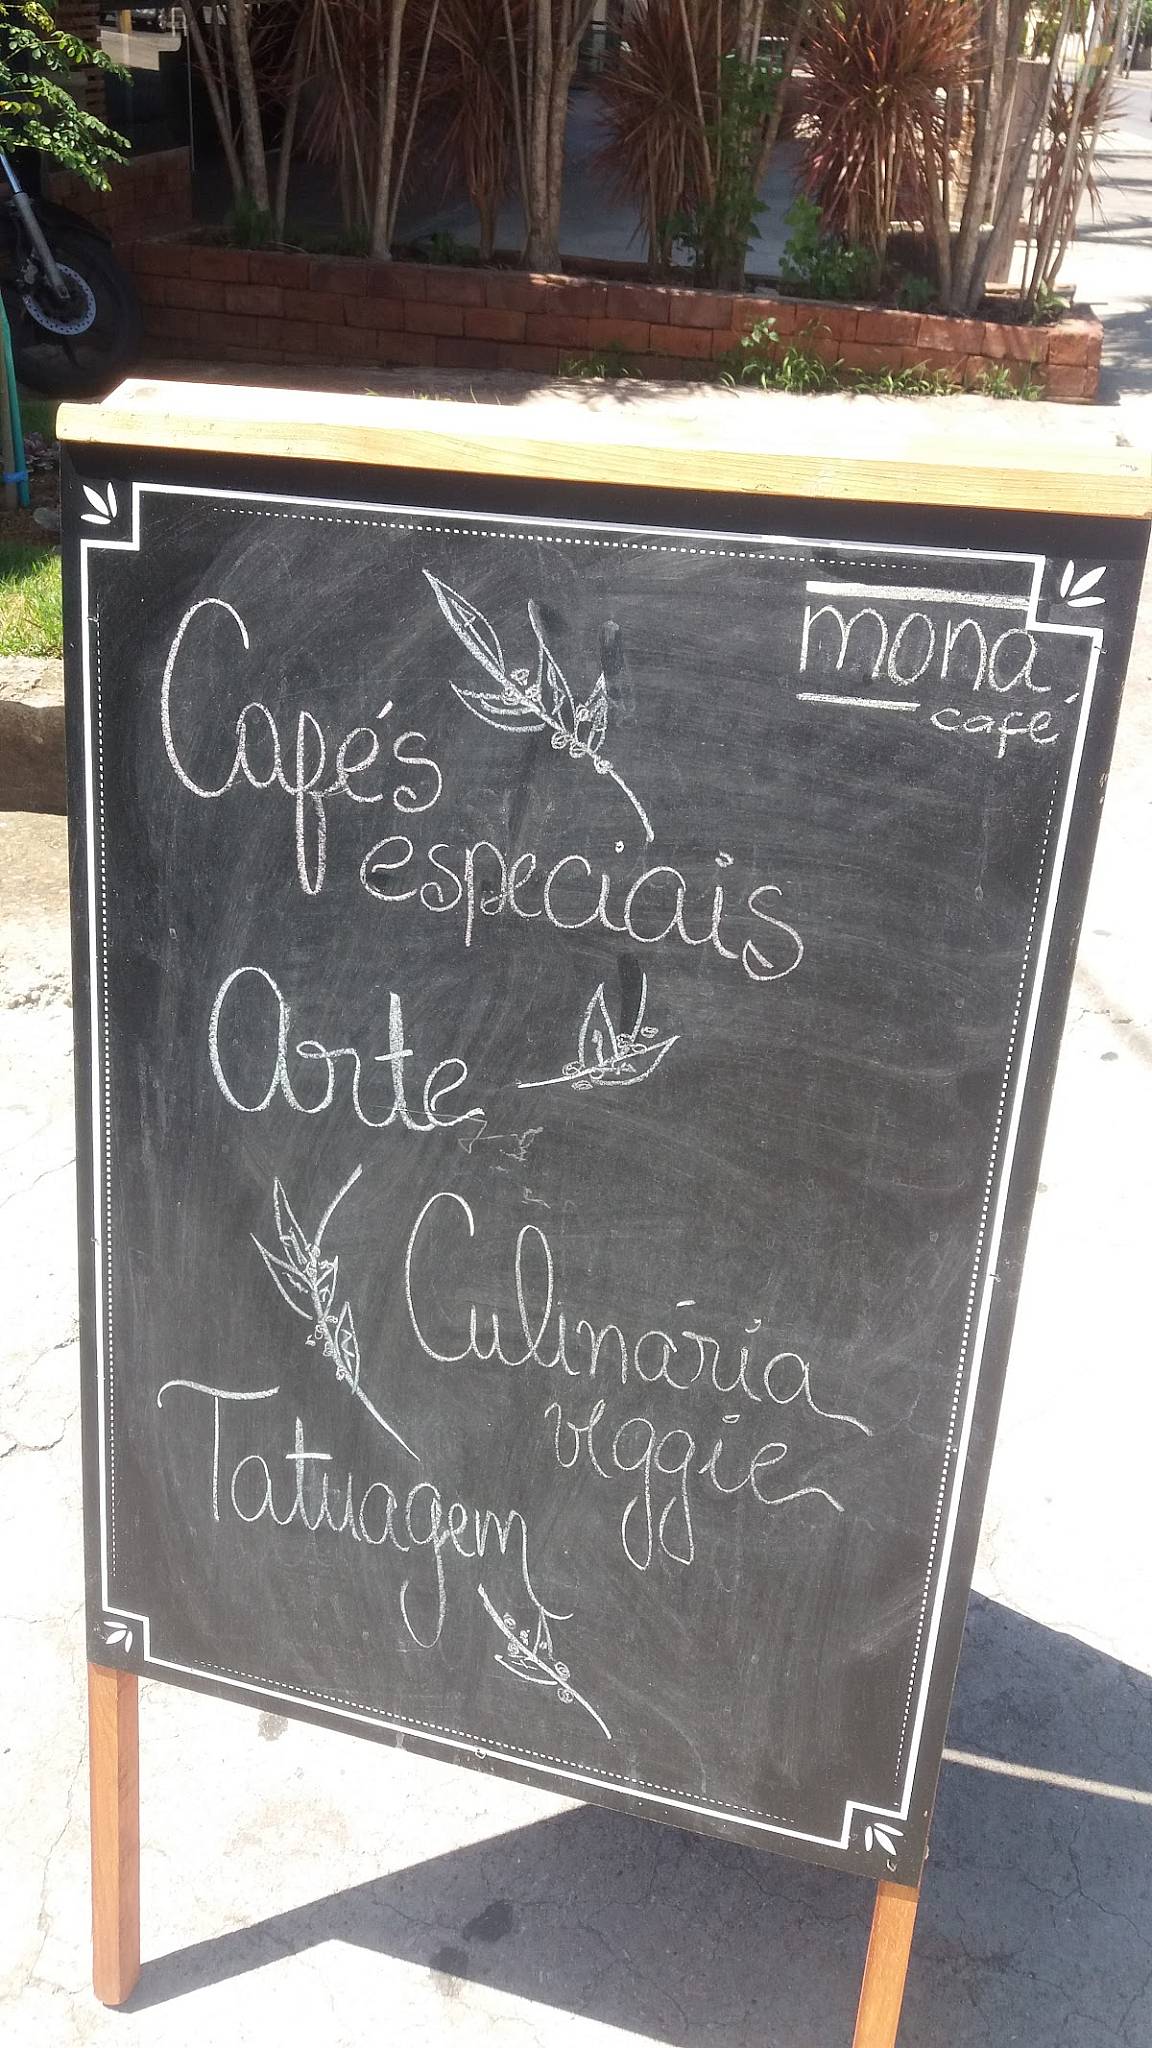 mona
café
Cafés
especiais
Arte
Culinária
veggie
Tatuagem